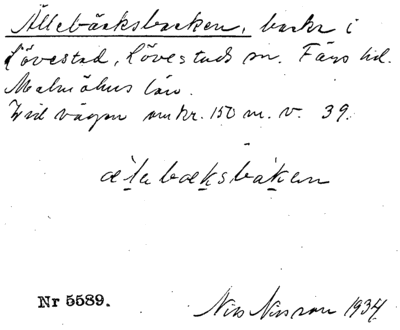 Ällebäcksbacken, backe i
Lövestad, Lövestads sn. Färs hd.
Malmöhus län.
Vid vägen omkr. 150 m. v. 39.
æ̀lebæksbàken
Nr 5589.
Nils Nilsson 1934